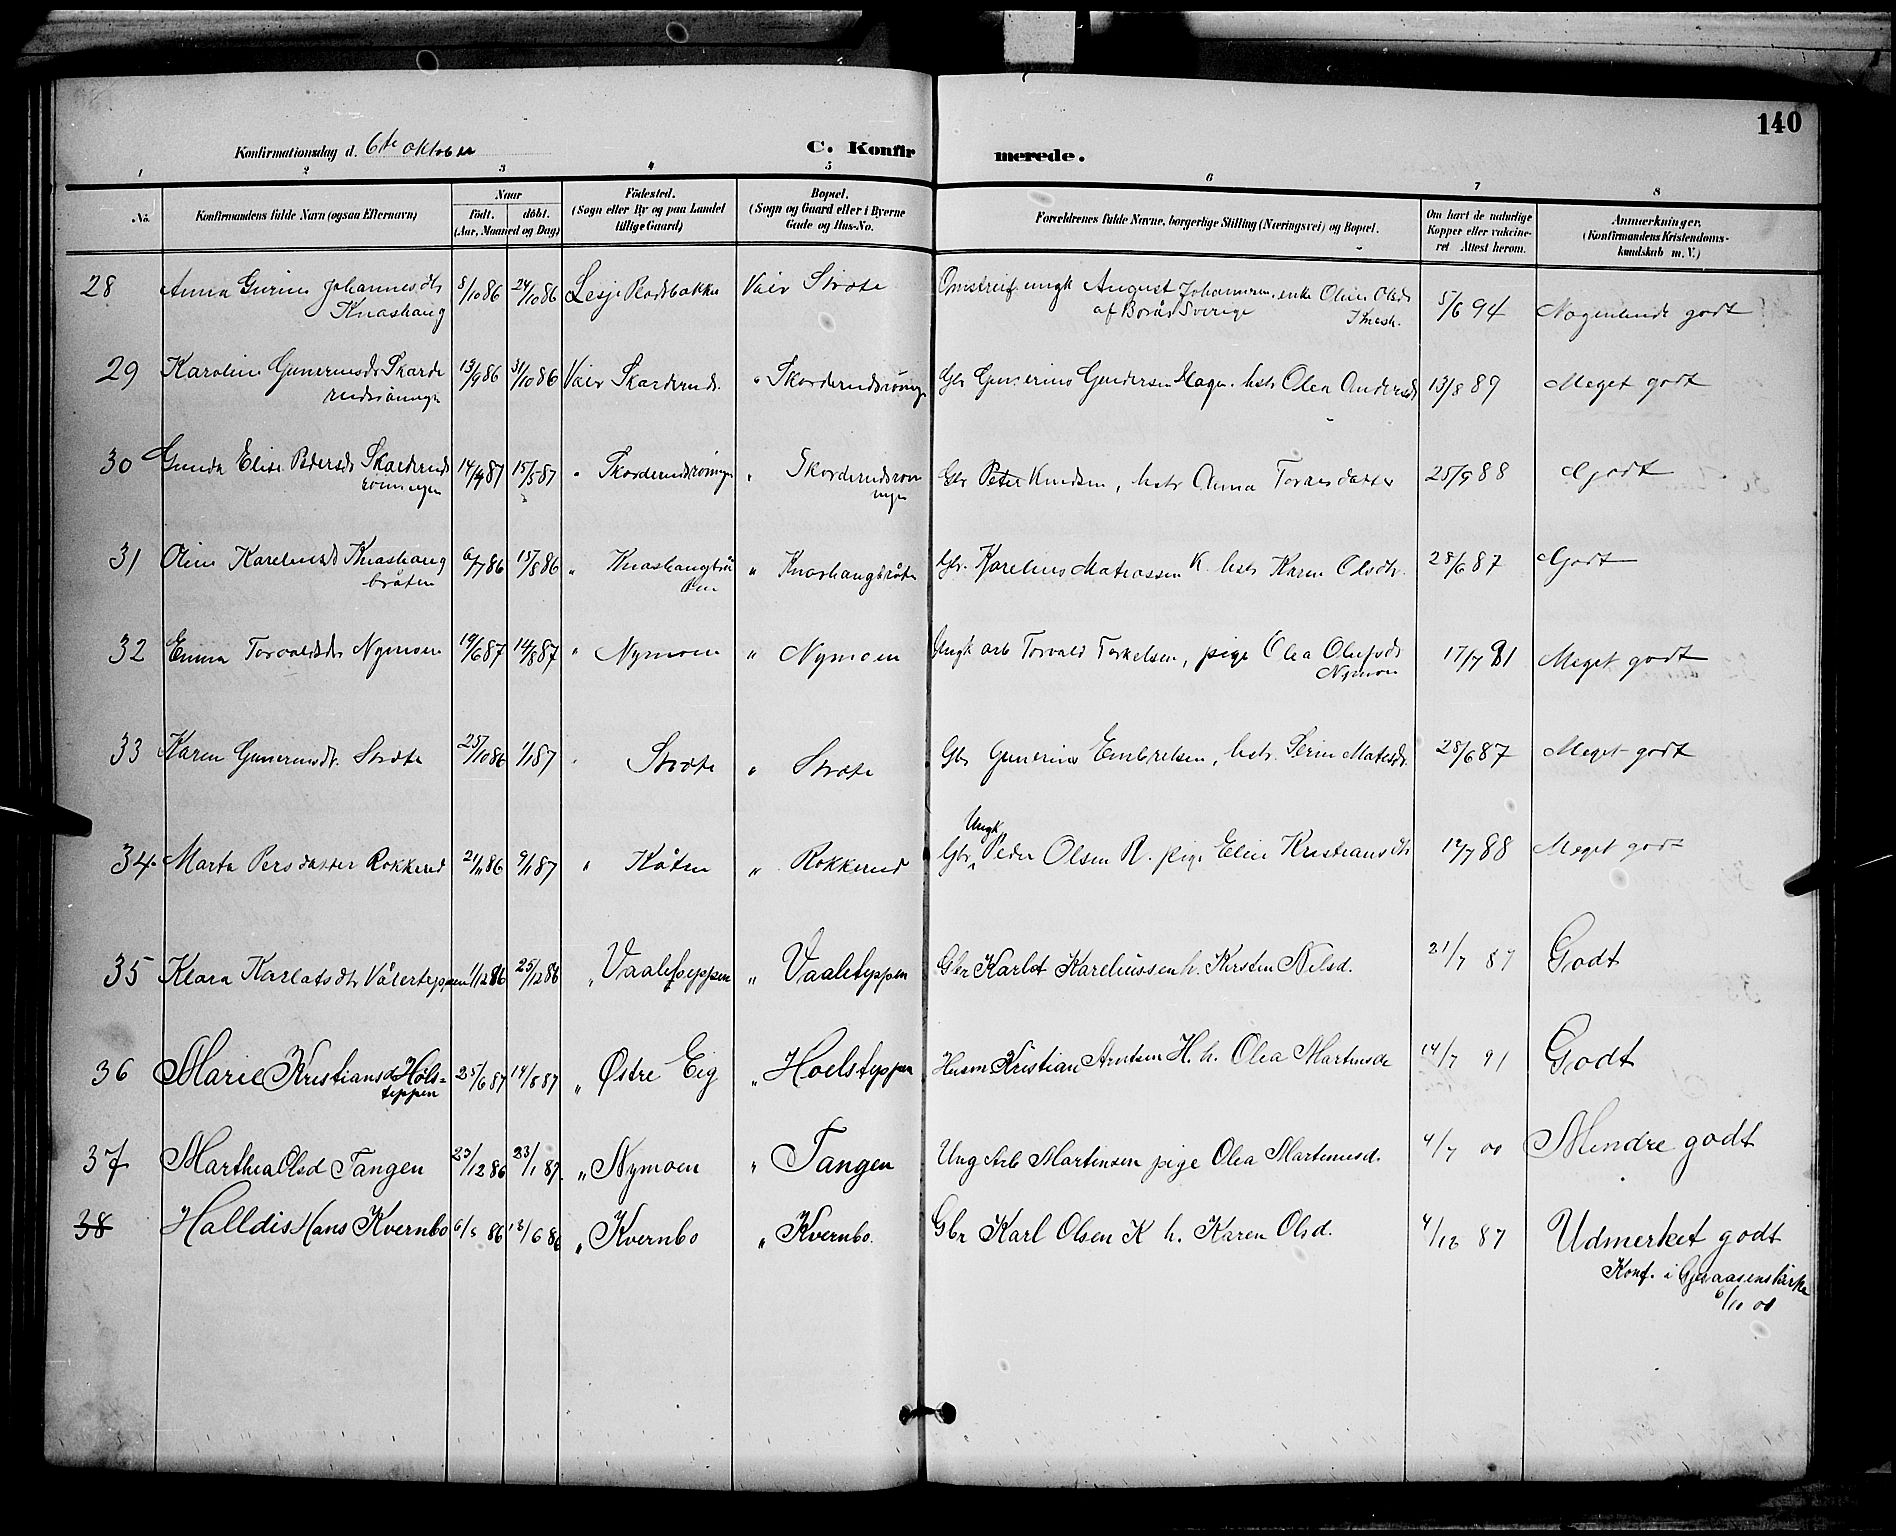 140
Konfirmationsdag d. 6te oktober
C. Konfirmerede.
1 2 3 4 5 6 7 8
No.
Konfirmandens fulde Navn (ogsaa Efternavn)
Naar
født. døbt.
(Aar, Maaned og Dag)
Fødested.
(Sogn eller By og paa Landet
tillige Gaard)
Bopæl.
(Sogn og Gaard eller i Byerne
Gade og Hus-No.
Forældrenes fulde Navne, borgerlige Stilling (Næringsvei) og Bopæl.
Om havt de naturlige
Kopper eller vakcine-
ret Attest herom.
Anmærkninger,
(Konfirmandens Kristendoms-
kundskab m. V.)
28 Anna Gurine Johannesdtr 8/10 86 24/10 86 Vaier Stræte August Johannesen enke Oline Olsdr 5/6 94 Nogenlunde godt
Knashaug af Borås Sverige
29 Karoline Guneriusdr Skarde 13/9 86 31/10 86 Vaier Skarderud " Gbr Gunerius Gundersen hstr Olea Andersd 13/8 89 Meget godt
30 Gunda Elise Pedersdr Skarderuds 14/4 87 15/5 87 " " Gbr Peter Knudsen, hstr Anna 25/9 88 Godt
31 Oline Kareliusd Knashaug 6/7 86 15/8 86 " " Gbr. Karelius Matiassen K. hstr Karen Olsdtr. 28/6 87 Godt
bråten
32 Emma Torvaldsdr Nymoen 19/6 87 14/8 87 " Nymoen " Nymoen Ungk arb Torvald Torkelsen, pige Olea Olufsdr 17/7 91 Meget godt
Nymoen
33 Karen Gunerusdt. Stræte 25/10 86 1/1 87 " Stræte " Stræte Gbr Gunerius Embretsen, hstr. Serine Matisdr. 28/6 87 Meget godt
Ungk
34. Marta Persdatter Rokkerud 21/11 86 9/1 87 " Kåten " Rokkerud Gbr Peder Olsen R. pige Eline Kristiansdtr 19/7 88 Meget godt
35 Klara Karlatsdtr Vålerteppen 1/12 86 25/12 86 " Vaaleteppen " Vaaleteppen Gbr Karlot Kareliussen h. Kirsten Nilsd. 21/7 87 Godt
36 Marie Kristiansd Høls= 25/6 87 14/8 87 " Østre Eig " Hoelsteppen Husm Kristian Arntsen H. h. Olea Martinsdr 14/7 91 Godt
teppen
37 Marthea Olsd Tangen 23/12 86 23/1 87. " Nymoen " Tangen Ung Arb Martinsen pige Olea Martinusd. 4/7 00 Mindre godt
38 Halldis Hans Kvernbo 6/5 86 13/6 86 " Kvernbo " Kvernbo. Gbr Karl Olsen K h. Karen Olsd. 4/12 87 Udmerket godt
Konf. i Gjesaasens kirke
6/10 01